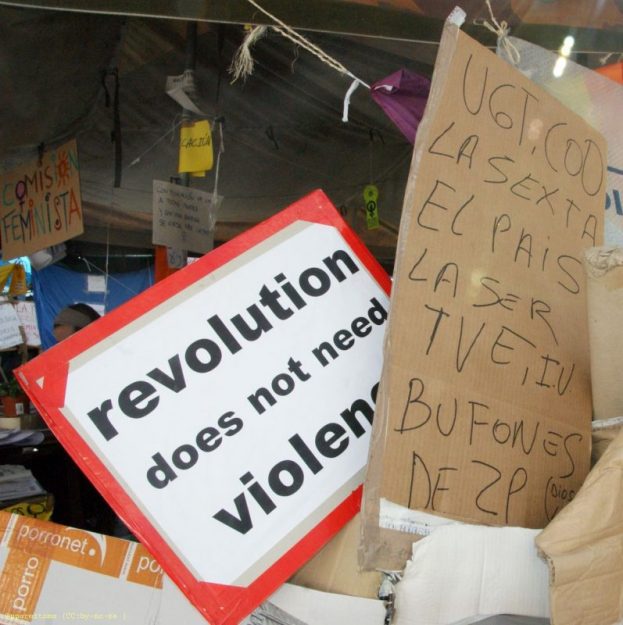 COMISIÓN
FEMINISTA
CACIÓN
revolution
does not need
violenc
UGT, COO
LA SEXTA
EL PAIS
LA SER
TVE, IU
BUFONES
DE ZP
porronet.
porro
po